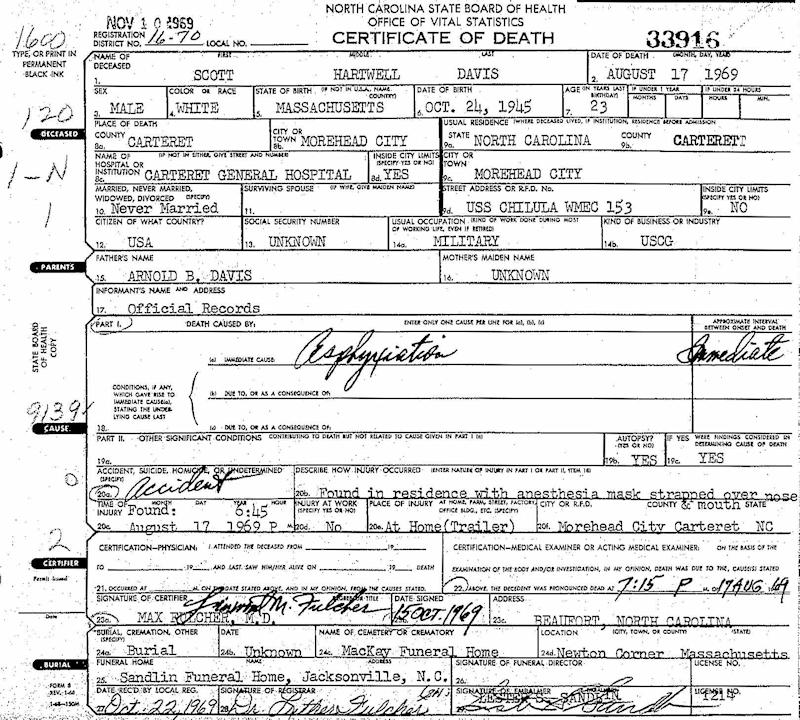 NORTH CAROLINA STATE BOARD OF HEALTH
OFFICE OF VITAL STATISTICS
CERTIFICATE OF DEATH
NOV 10 1969
33916
1600
REGISTRATION DISTRICT NO. 16-70 LOCAL NO.
TYPE, OR PRINT IN PERMANENT BLACK INK
NAME OF DECEASED FIRST MIDDLE LAST DATE OF DEATH (MONTH, DAY, YEAR)
1. SCOTT HARTWELL DAVIS 2. AUGUST 17 1969
SEX COLOR OR RACE STATE OF BIRTH (IF NOT IN U.S.A., NAME COUNTRY) DATE OF BIRTH AGE (IN YEARS LAST BIRTHDAY) IF UNDER 1 YEAR MONTHS DAYS IF UNDER 24 HOURS HOURS MIN.
3. MALE 4. WHITE 5. MASSACHUSETTS 6. OCT. 24, 1945 7. 23
120
DECEASED
PLACE OF DEATH USUAL RESIDENCE (WHERE DECEASED LIVED, IF INSTITUTION, RESIDENCE BEFORE ADMISSION
COUNTY CITY OR TOWN STATE COUNTY
8a. CARTERET 8b. MOREHEAD CITY 9a. NORTH CAROLINA 9b. CARTERET
1-N
NAME OF HOSPITAL OR INSTITUTION (IF NOT IN EITHER, GIVE STREET AND NUMBER) INSIDE CITY LIMITS (SPECIFY YES OR NO) CITY OR TOWN
8c. CARTERET GENERAL HOSPITAL 8d. YES 9c. MOREHEAD CITY
1
MARRIED, NEVER MARRIED, WIDOWED, DIVORCED (SPECIFY) SURVIVING SPOUSE (IF WIFE, GIVE MAIDEN NAME) STREET ADDRESS OR R.F.D. No. INSIDE CITY LIMITS (SPECIFY YES OR NO)
10. Never Married 11. 9d. USS CHILULA WMEC 153 9e. NO
CITIZEN OF WHAT COUNTRY? SOCIAL SECURITY NUMBER USUAL OCCUPATION (KIND OF WORK DONE DURING MOST OF WORKING LIFE, EVEN IF RETIRED) KIND OF BUSINESS OR INDUSTRY
12. USA 13. UNKNOWN 14a. MILITARY 14b. USCG
PARENTS
FATHER'S NAME MOTHER'S MAIDEN NAME
15. ARNOLD B. DAVIS 16. UNKNOWN
INFORMANT'S NAME AND ADDRESS
17. Official Records
STATE BOARD OF HEALTH COPY
PART I. DEATH CAUSED BY: ENTER ONLY ONE CAUSE PER LINE FOR (a), (b), (c) APPROXIMATE INTERVAL BETWEEN ONSET AND DEATH
(a) IMMEDIATE CAUSE Asphyxiation Immediate
CONDITIONS, IF ANY, WHICH GAVE RISE TO IMMEDIATE CAUSE(a), STATING THE UNDERLYING CAUSE LAST
(b) DUE TO, OR AS A CONSEQUENCE OF:
9139
CAUSE
18. (c) DUE TO, OR AS A CONSEQUENCE OF:
PART II. OTHER SIGNIFICANT CONDITIONS CONTRIBUTING TO DEATH BUT NOT RELATED TO CAUSE GIVEN IN PART I (a) AUTOPSY? (YES OR NO) IF YES WERE FINDINGS CONSIDERED IN DETERMINING CAUSE OF DEATH
19a. 19b. YES 19c. YES
0
ACCIDENT, SUICIDE, HOMICIDE, OR UNDETERMINED (SPECIFY) DESCRIBE HOW INJURY OCCURRED (ENTER NATURE OF INJURY IN PART I OR PART II, ITEM 18)
20a. Accident 20b. Found in residence with anesthesia mask strapped over nose & mouth
TIME OF INJURY MONTH DAY YEAR HOUR INJURY AT WORK (SPECIFY YES OR NO) PLACE OF INJURY AT HOME, FARM, STREET, FACTORY, OFFICE BLDG., ETC. (SPECIFY) CITY OR R.F.D. COUNTY STATE
Found: 6:45
20c. August 17 1969 P M. 20d. No 20e. At Home(Trailer) 20f. Morehead City Carteret NC
2
CERTIFIER
Permit Issued
Date
CERTIFICATION-PHYSICIAN: I ATTENDED THE DECEASED FROM 19 CERTIFICATION-MEDICAL EXAMINER OR ACTING MEDICAL EXAMINER: ON THE BASIS OF THE
TO 19 AND LAST SAW HIM/HER ALIVE ON 19 DEATH EXAMINATION OF THE BODY AND/OR INVESTIGATION, IN MY OPINION, DEATH WAS DUE TO THE, CAUSE(S) STATED
21. OCCURRED AT M. ON THE DATE STATED ABOVE, AND IN MY OPINION, FROM THE CAUSES STATED. 22. ABOVE. THE DECEDENT WAS PRONOUNCED DEAD AT 7:15 P M. 17 AUG 69
SIGNATURE OF CERTIFIER DEGREE OR TITLE DATE SIGNED ADDRESS
23a. MAX FULCHER, M.D. M. Fulcher 15 OCT. 1969 BEAUFORT, NORTH CAROLINA
BURIAL, CREMATION, OTHER (SPECIFY) DATE NAME OF CEMETERY OR CREMATORY LOCATION (CITY, TOWN, OR COUNTY) (STATE)
24a. Burial 24b. Unknown 24c. MacKay Funeral Home 24d. Newton Corner Massachusetts
BURIAL
FUNERAL HOME NAME ADDRESS SIGNATURE OF FUNERAL DIRECTOR LICENSE NO.
25. Sandlin Funeral Home, Jacksonville, N.C. 26.
FORM 8
REV. 1-68
1-68-150M
DATE REC'D BY LOCAL REG. SIGNATURE OF REGISTRAR SIGNATURE OF EMBALMER LICENSE NO.
27. Oct. 22, 1969 28. Dr. Luther Fulcher LESTER S. SANDLIN 1214